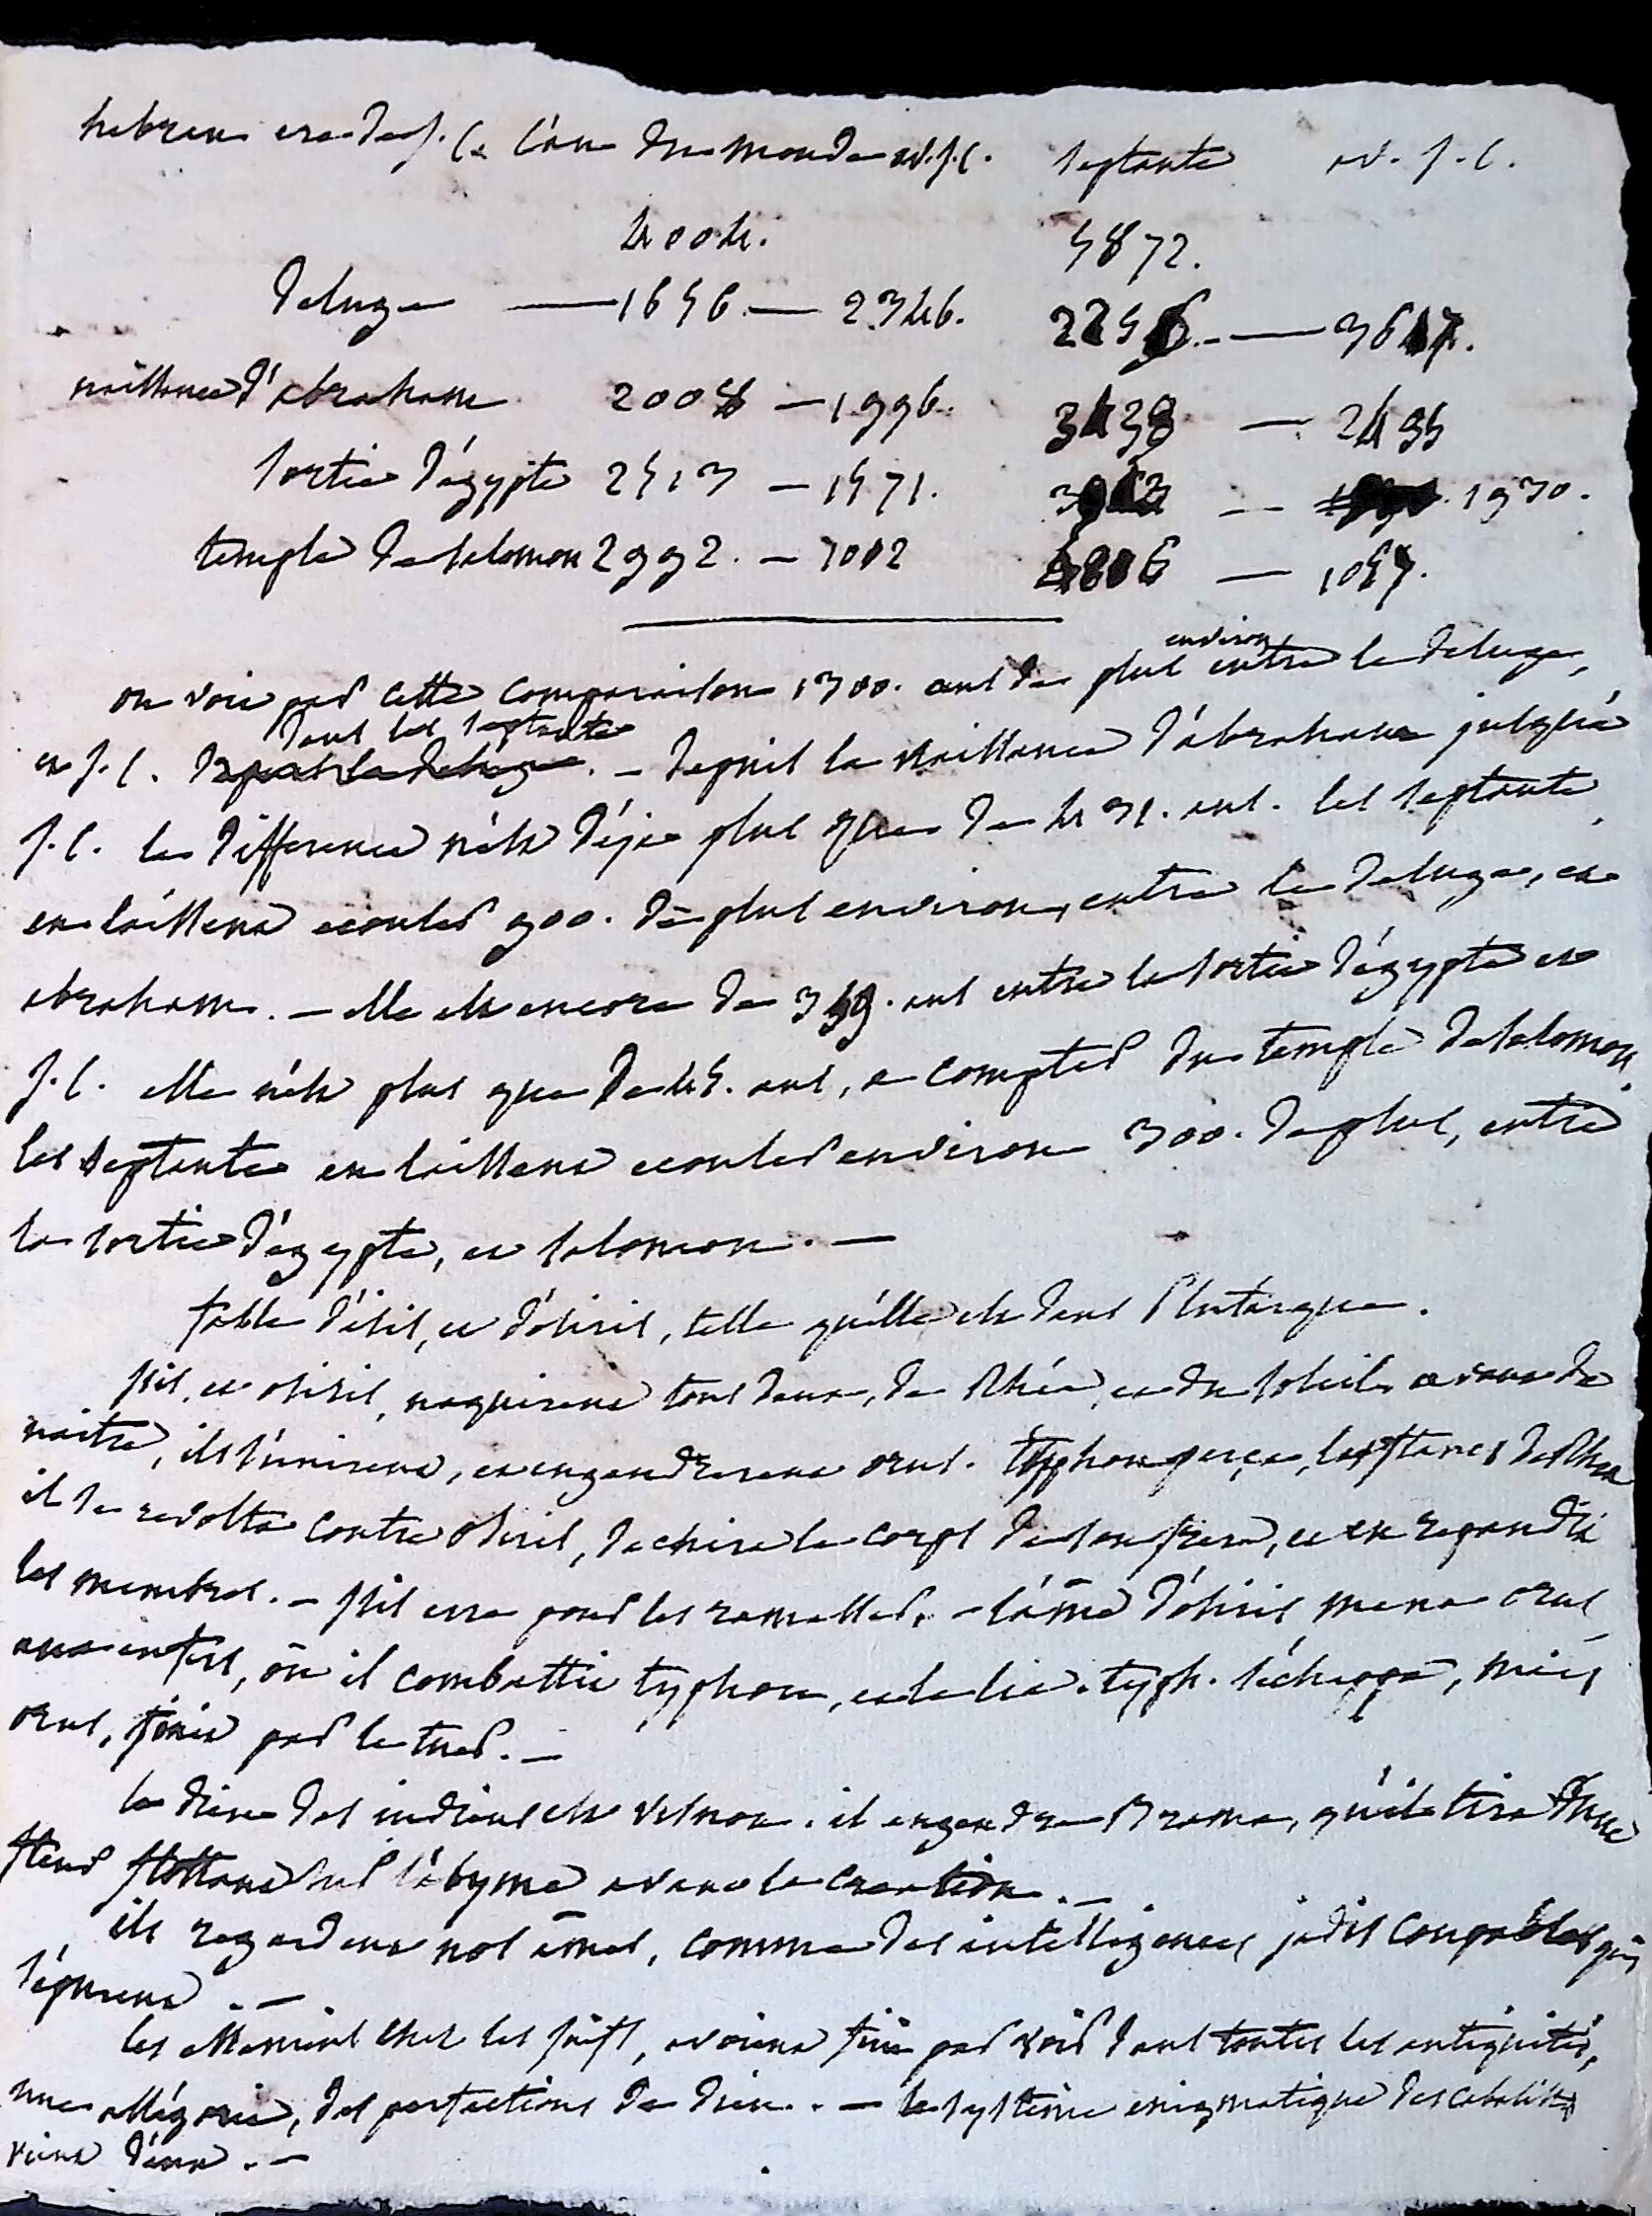 hebreu ere de J. C. l'an du monde av. J. C. septante av. J. C.
4004. 5872.
Deluge — 1656 — 2346. 2256. — 3617.
naissance d'abraham 2008 — 1996. 3438 — 2434
sortie d'égypte 2513 — 1471. — 1930.
temple de salomon 2992. — 1012 4806 — 1057.
environ
on voit par cette comparaison 1300. ans de plus entre le deluge,
dans les septante
et J. C. depuis le deluge. — depuis la naissance d'abraham jusqu'à
J. C. la difference n'est déja plus que de 431. ans. les septante
en laissent ecouler 900. de plus environ, entre le deluge, et
abraham. — elle est encore de 359. ans entre la sortie d'égypte et
J. C. elle n'est plus que de 45. ans, a compter du temple de salomon.
les septante en laissent ecouler environ 300. de plus, entre
la sortie d'égypte, et salomon. —
fable d'isis, et d'osiris, telle qu'elle est dans Plutarque.
Isis, et osiris, naquirent tous deux, de Rhéa, et du soleil. avant de
naitre, ils s'unirent, et engendrerent orus. typhon perça, les flancs de Rhea
il se revolta contre osiris, dechira le corps de son frere, et en repandit
les membres. — Isis erra pour les ramasser. — l'âme d'osiris mena orus
aux enfers, où il combattit typhon, et le lia. typh. s'échappa, mais
orus, finit par le tuer. —
le dieu des indiens est visnou. il engendra Brama, qu'il tira d'une
fleur flottant sur l'abyme avant la creation. —
ils regardent nos âmes, comme des intelligences jadis coupables qui
s'épurent. —
les esseniens chez les juifs, avoient fini par voir dans toutes les antiquités,
une allégorie, des perfections de dieu. — le systême enigmatique des cabalistes
vient d'eux. —